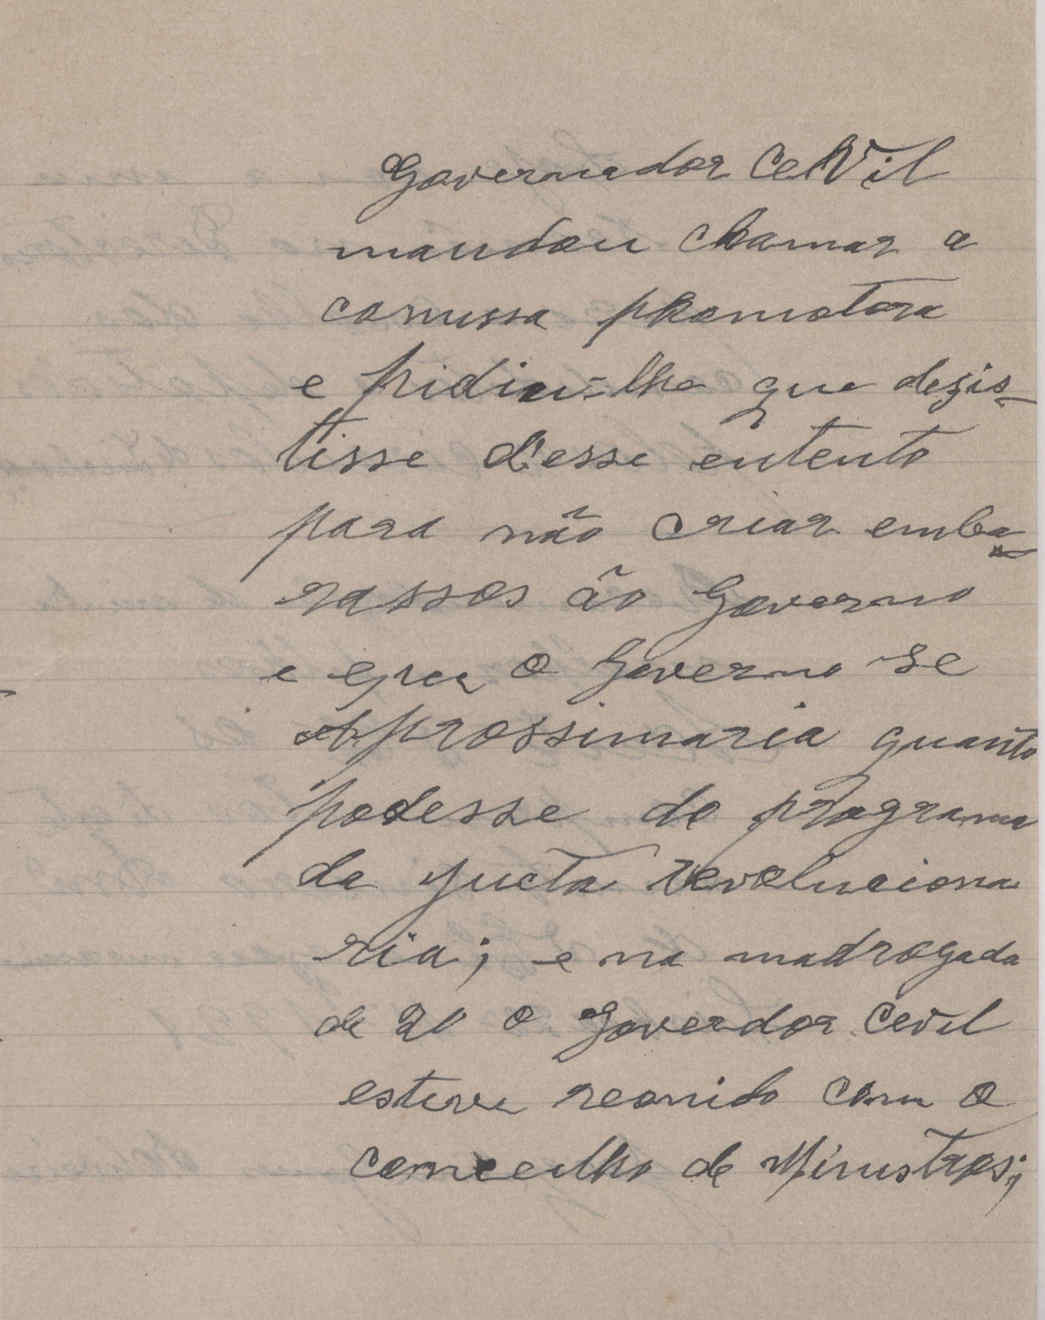 Governador Cevil
mandou chamar a
comissa promotora
e pidiu-lhe que dezis-
tisse d'esse entento
para não criar emba-
rassos ão Governo
e que o Governo se
aprossimaria quanto
podesse do programa
da Jucta revoluciona
ria; e na madrogada
de 21 o Goverdor Cevil
esteve reonido com o
conceilho de Ministros;